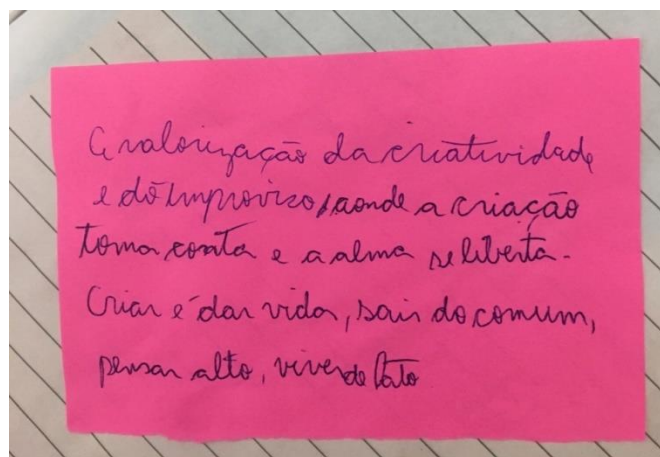 A valorização da criatividade
e do improviso, aonde a criação
toma conta e a alma se liberta.
Criar é dar vida, sair do comum,
pensar alto, viver de fato